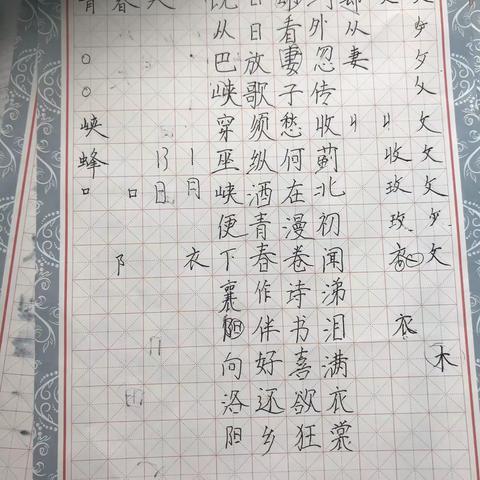 木
收玫玫衣
从妻
外忽传收蓟北初闻涕泪满衣裳
看妻子愁何在漫卷诗书喜欲狂
日放歌须纵酒青春作伴好还乡
从巴峡穿巫峡便下襄阳向洛阳
月衣
日
春口阝
青峡蜂口